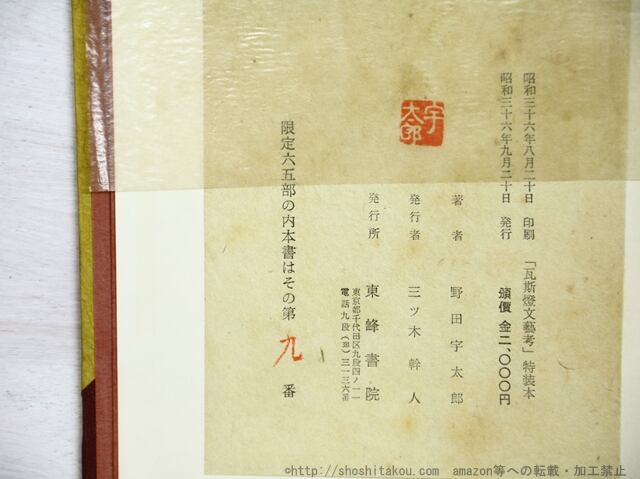 昭和三十六年八月二十日　印刷　「瓦斯燈文藝考」特装本
昭和三十六年九月二十日　発行　頒價　金二、〇〇〇円
宇太郎
著者　野田宇太郎
発行者　三ツ木幹人
発行所　東峰書院
東京都千代田区九段四ノ一一
電話九段(331)三一三六番
限定六五部の内本書はその第九番
©http://shoshitakou.com　amazon等への転載・加工禁止